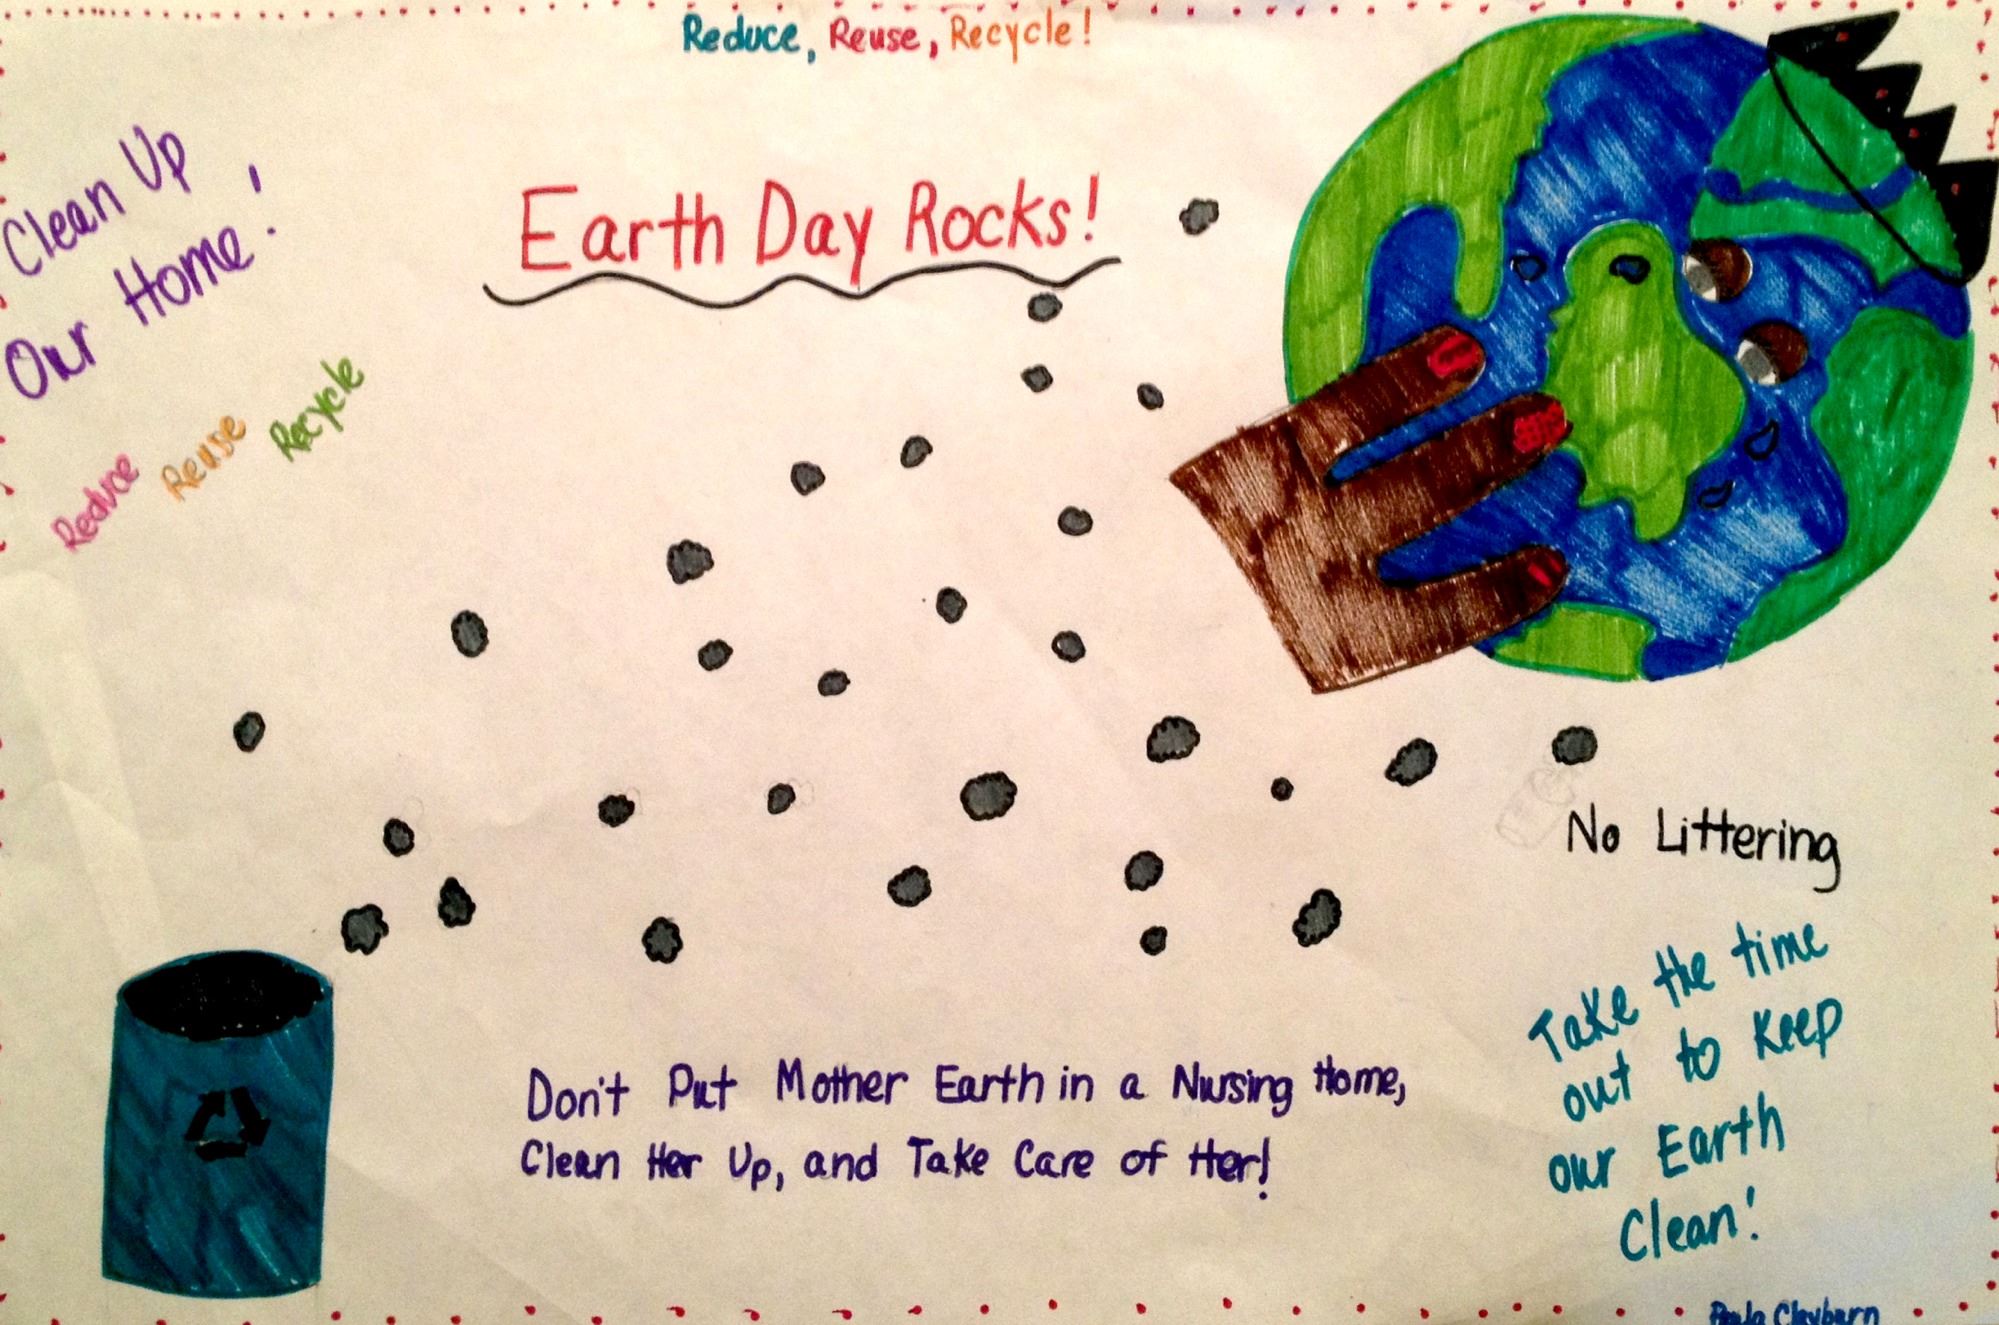 Reduce, Reuse, Recycle!
Clean Up
Our Home!
Earth Day Rocks!
Reduce Reuse Recycle
No Littering
Take the time
out to Keep
our Earth
Clean!
Don't Put Mother Earth in a Nursing Home,
Clean Her Up, and Take Care of Her!
Clayburn